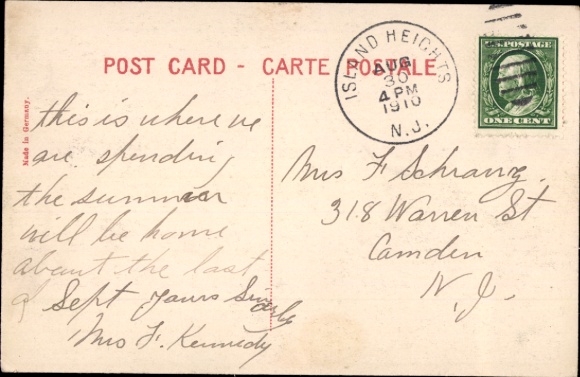 POST CARD - CARTE POSTALE
ISLAND HEIGHTS
AUG
30
4 PM
1910
N.J.
U.S. POSTAGE
ONE CENT
Made in Germany.
this is where we
are spending
the summer
will be home
about the last
of Sept yours
Mrs F. Kennedy
Mrs F Schranz
318 Warren St
Camden
N.J.